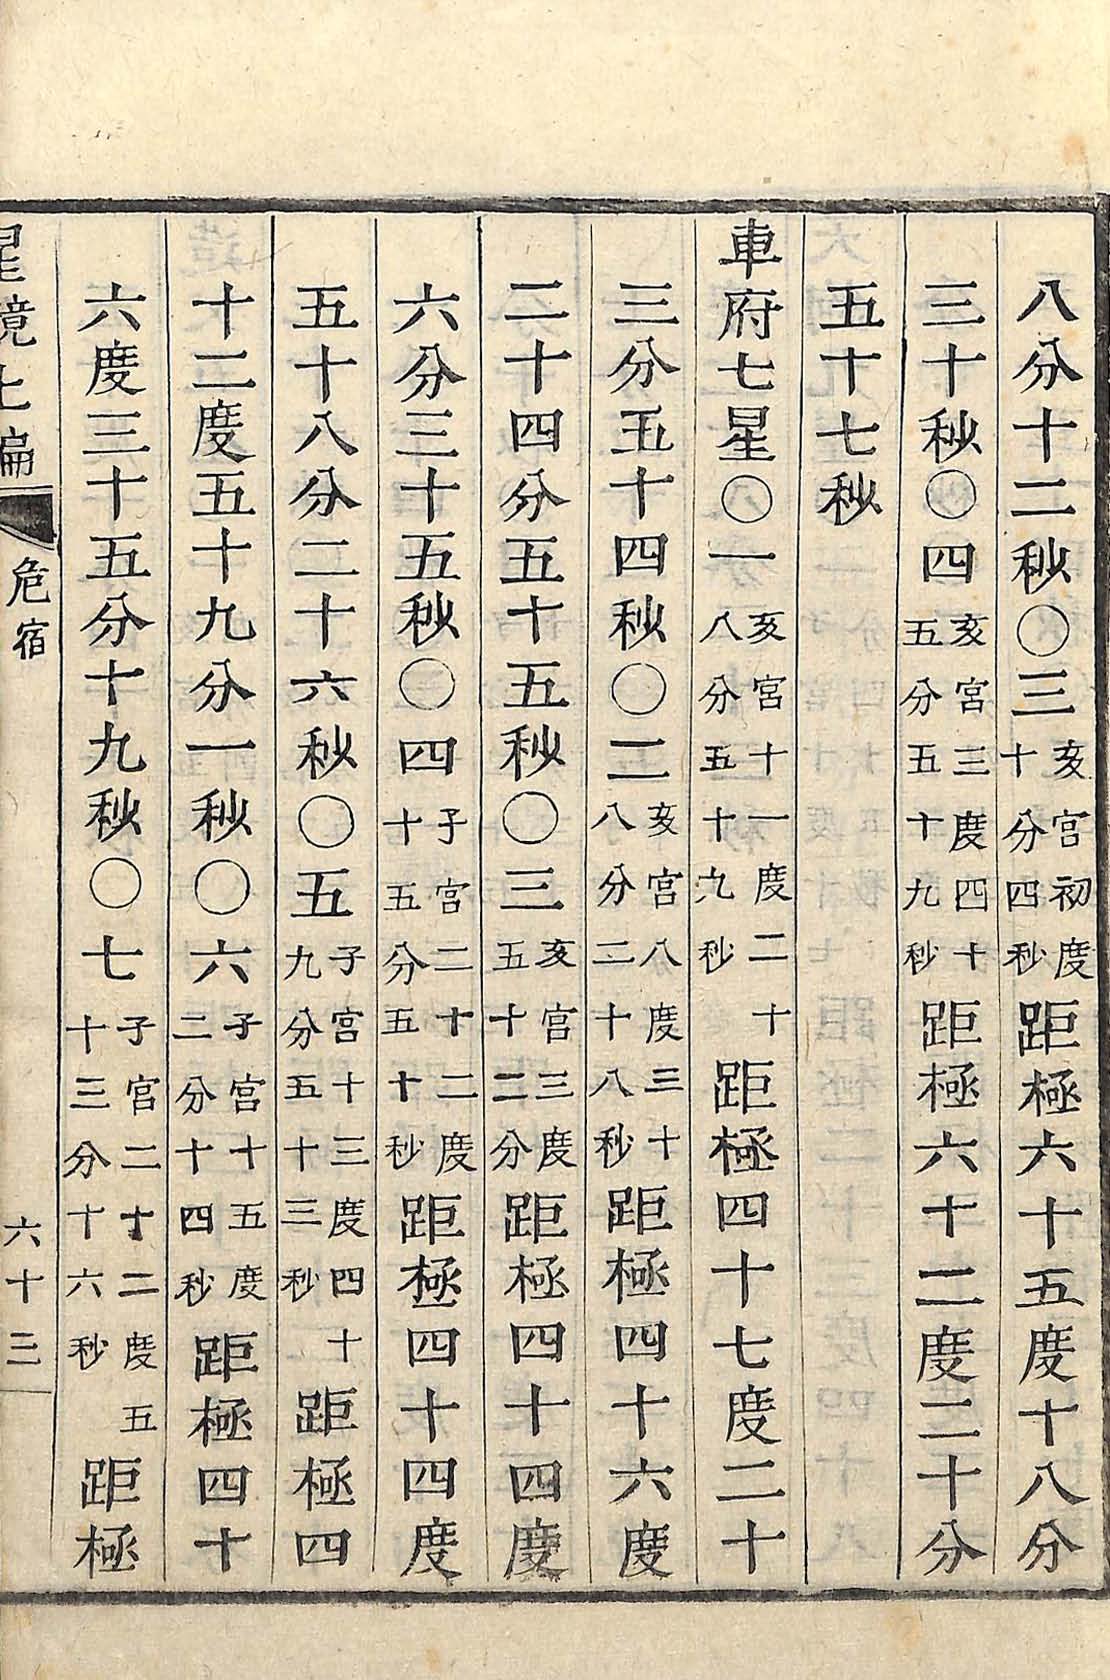 八分十二秒〇三亥宮初度十分四秒距極六十五度十八分
三十秒〇四亥宮三度四十五分五十九秒距極六十二度二十分
五十七秒
車府七星〇一亥宮十一度二十八分五十九秒距極四十七度二十
三分五十四秒〇二亥宮八度三十八分二十八秒距極四十六度
二十四分五十五秒〇三亥宮三度五十二分距極四十四度
六分三十五秒〇四子宮二十二度十五分五十秒距極四十四度
五十八分二十六秒〇五子宮十三度四十九分五十三秒距極四
十二度五十九分一秒〇六子宮十五度二分十四秒距極四十
六度三十五分十九秒〇七子宮二十二度五十三分十六秒距極
星鏡上編 危宿 六十三